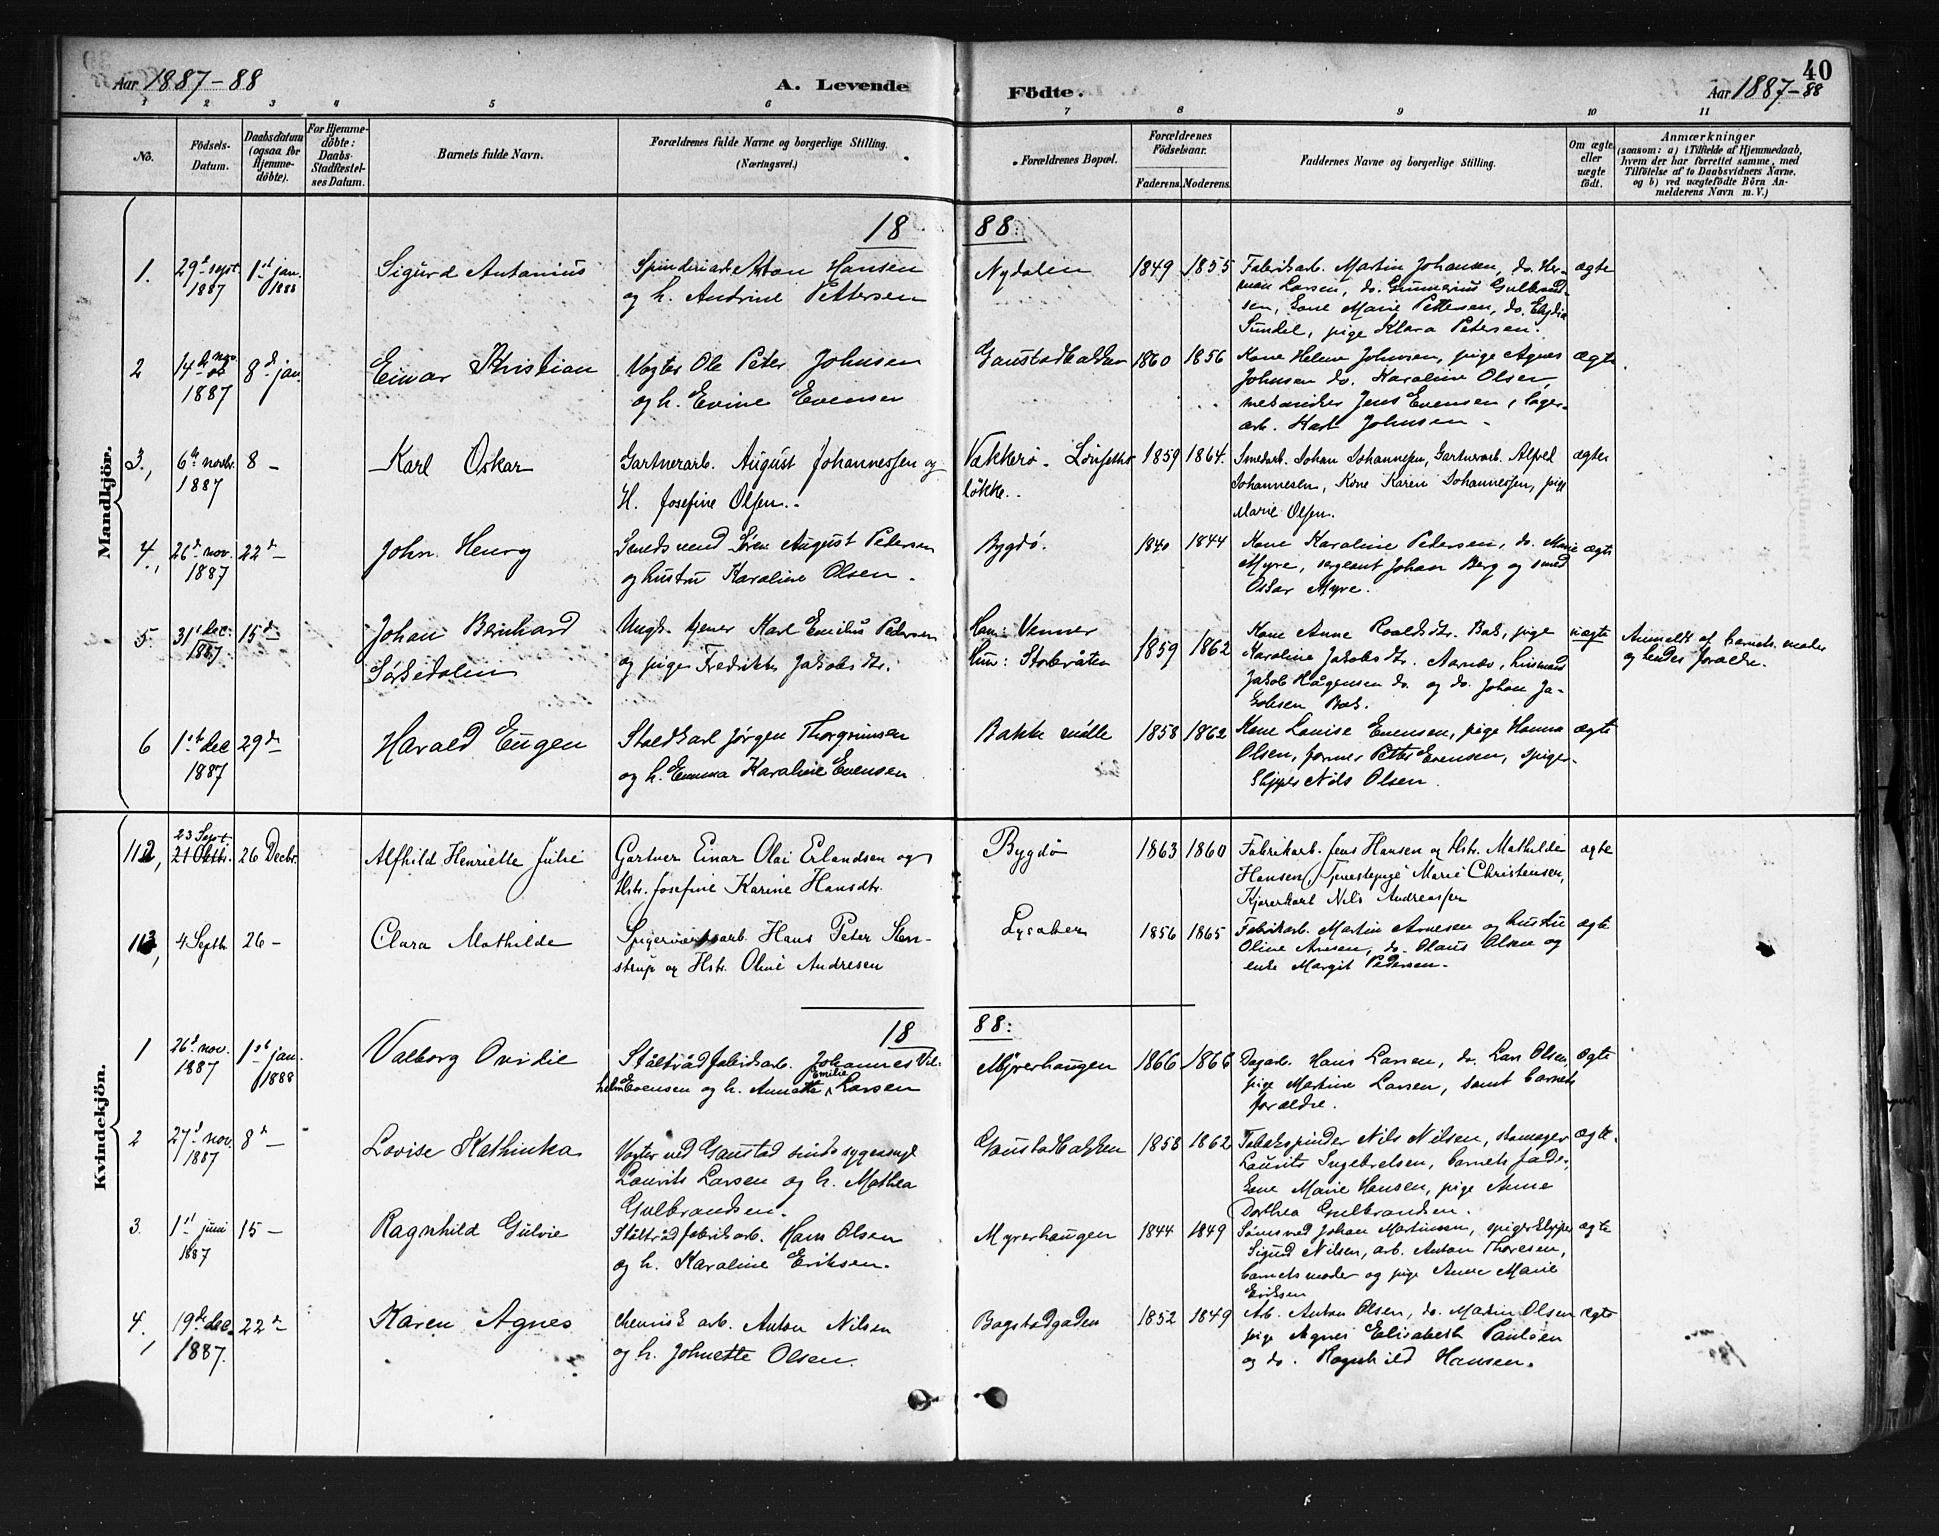 Aar 1887-88
A. Levende Födte.
Aar 1887-88
40
1 2 3 4 5 6 7 8 9 10 11
No.
Födsels-Datum.
Daabsdatum (ogsaa for Hjemmedöbte).
For Hjemmedöbte: Daabs-Stadfæstelses Datum.
Barnets fulde Navn.
Forældrenes fulde Navne og borgerlige Stilling.
(Næringsvei.)
Forældrenes Bopæl.
Forældrenes Födselsaar.
Faderens. Moderens.
Faddernes Navne og borgerlige Stilling.
Om ægte eller uægte födt.
Anmærkninger
(saasom: a) i Tilfælde af Hjemmedaab,
hvem der har forrettet samme, med
Tilföielse af to Daabsvidners Navne,
og b) ved uægtefödte Börn Anmelderens Navn m. V.)
Mandkjön.
18 88:
1. 29d sept. 1887
1st jan. 1888
Sigurd Antonius
Spinderiarb. Anton Hansen
og h. Andrine Pettersen
Nydalen
1849 1855
Fabriksarb. Martin Johansen, do. Herman
Larsen, do. Gunnerius Gulbrandsen,
kone Marie Pettersen, do.
Sundel, pige Klara Petersen.
ægte
2 14de nov. 1887
8d jan.
Einar Kristian
Vogter Ole Peter Johnsen
og h. Evine Evensen
Gaustadbakken
1860 1856
Kone Helene Johnsen, pige Agnes
Johnsen do. Karoline Olsen,
mekaniker Jens Evensen, lagerarb.
Karl Johnsen
ægte
3., 6te novbr. 1887
8 -
Karl Oskar
Gartnerarb. August Johannessen og
H. Josefine Olsen.
Vækkerö. Lönseths
løkke.
1859 1864
Smedarb. Johan Johannesen, Gartnerarb. Alfred
Johannesen, Kone Karen Johannessen, pige
Marie Olsen.
ægte
4., 26d nov. 1887
22d -
John Henry
Smedsvend Sören August Petersen
og hustru Karoline Olsen.
Bygdö.
1840 1844
Kone Karoline Pedersen, do. Marie
Myre, sergeant Johan Berg og smed
Oskar Myre.
ægte
5. 31te dec. 1887
15d -
Johan Bernhard
Sörkedalen
Ungk. tjener Karl Emilius Pedersen
og pige Fredrikke Jakobsdtr.
Han: Venner
Hun: Stobråten
1859 1862
Kone Anne Roaldsdtr. Bak, pige
Karoline Jakobsdtr. Aarnæs, husmand
Jakob Hågensen do. og do. Johan Jakobsen
Bak.
uægte
Anmeldt af barnets moder
og hendes forældre.
6 1ste dec 1887
29de
Harald Eugen
Staldkarl Jörgen Thorgrimsen
og h. Emma Karoline Evensen
Bakke mölle
1858 1862
Kone Louise Evensen, pige Hanna
Olsen, former Petter Evensen, spigerklipper
Nils Olsen.
ægte
Kvindekjön.
112, 23 Sept 21 Oktb.
26 Decbr.
Alfhild Henriette Julie
Gartner Einar Olai Erlandsen og
Hstr. Josefine Karine Hansdtr.
Bygdö
1863 1860
Fabrikarb. Jens Hansen og Hstr. Mathilde
Hansen, Tjenestepige Marie Christensen,
Kjørerkarl Nils Andreassen
ægte
113, 4 Septb.
26 -
Clara Mathilde
Spigerværksarb. Hans Peter Stenstrup
og Hstr. Oline Andresen
Lysaker
1856 1865
Fabrikarb. Martin Arnesen og hustru
Oline Arnesen, do. Olaus Olsen og
enke Margit Pedersen.
ægte
18 88:
1 26d nov. 1887
1st jan. 1888
Valborg Ovidie
Ståltrådfabriksarb. Johannes Vilhelm
Evensen og h. Annette Emilie Larsen
Myrerhaugen
1866 1866
Dagarb. Hans Larsen, do. Lars Olsen,
pige Martine Larsen, samt barnets
forældre.
ægte
2 27d nov. 1887
8d -
Lovise Kathinka
Vogter ved Gaustad sindssygeasyl
Laurits Larsen og h. Mathea
Gulbrandsen.
Gaustadbakken
1858 1862
Tobakspinder Nils Nilsen, skomager
Laurits Ingebretsen, barnets fader,
kone Marie Hansen, pige Anne
Dorthea Gulbrandsen.
ægte
3 1st juni 1887
15 -
Ragnhild Gulvie
Ståltrådfabriksarb. Hans Olsen
og h. Karoline Eriksen.
Myrerhaugen
1844 1849
Johan Martinsen, spigerklipper
Sigurd Nilsen, arb. Anton Thoresen,
barnets moder og pige Anne Marie
Eriksen
ægte
4., 19de dec. 1887.
22de
Karen Agnes
Chemisk arb. Anton Nilsen
og h. Johnette Olsen.
Bogstadgaden
1852 1849
Arb. Anton Olsen, do. Martin Olsen
pige Agnes Elisabeth Paulsen
og do. Ragnhild Hansen.
ægte